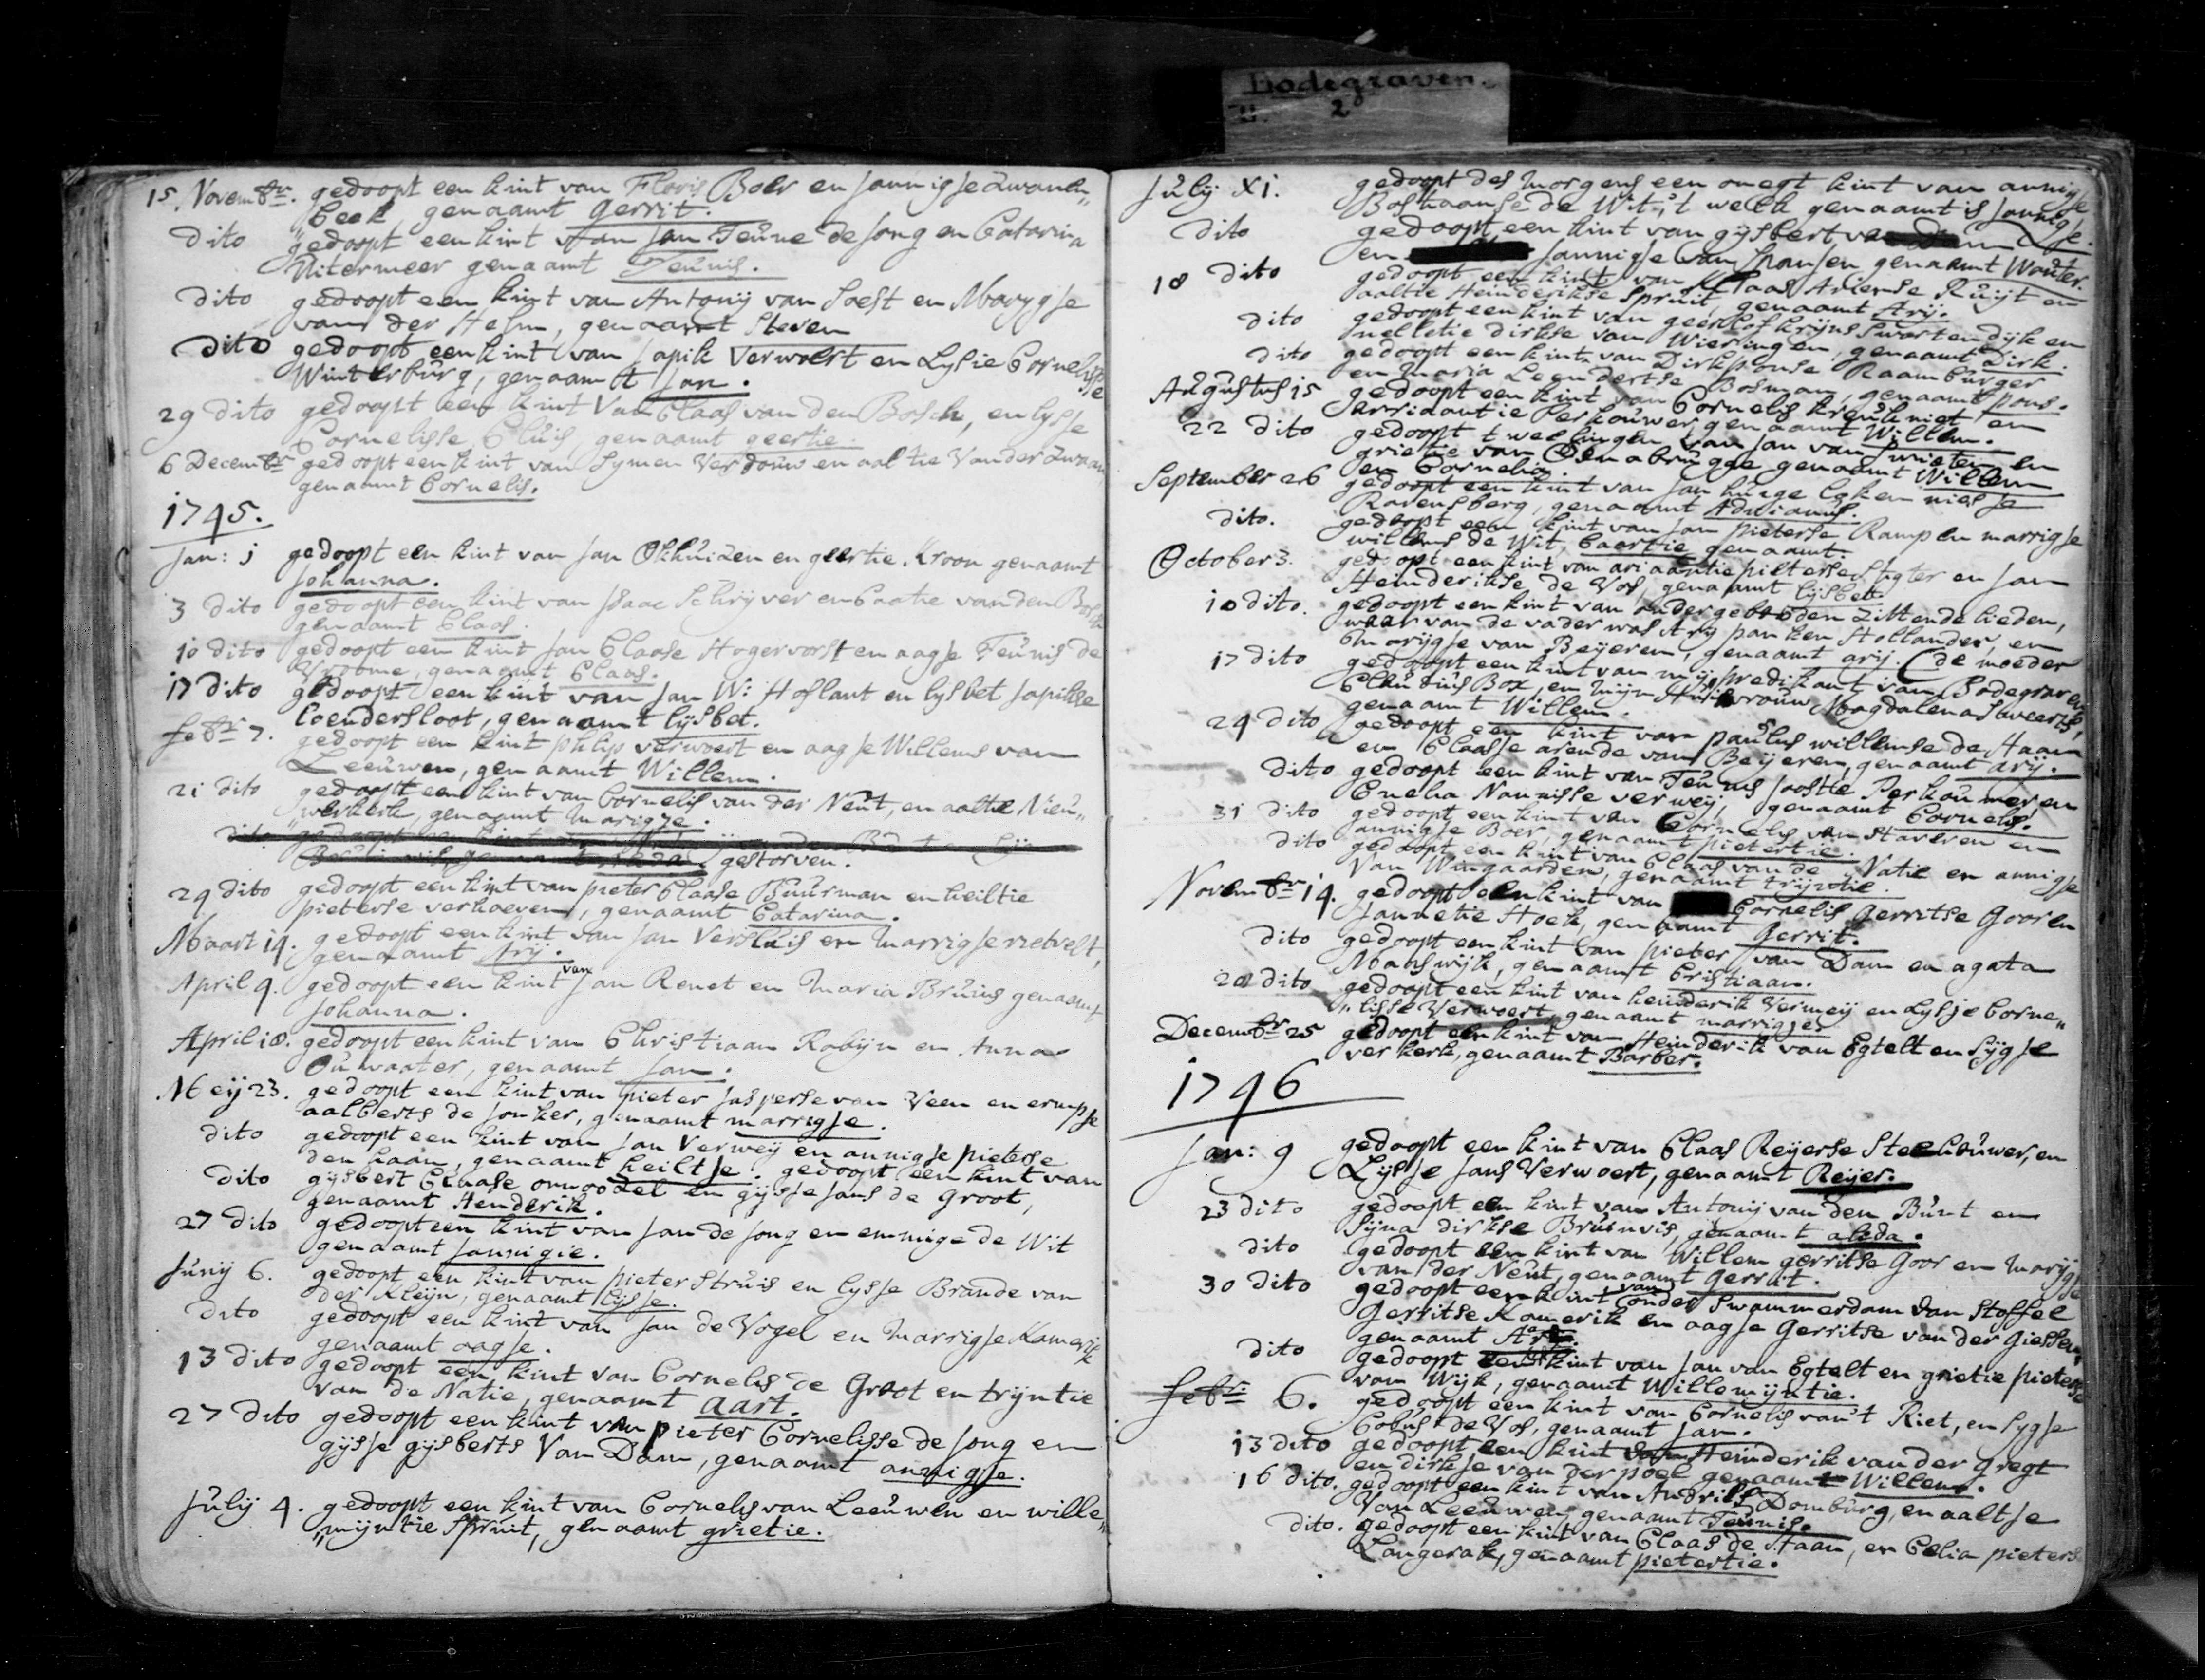 Bodegraven.
2
15. Novembr. gedoopt een kint van Floris Boer en Jannigje Zwanen„
„beek, genaamt Gerrit.
dito gedoopt een kint van Jan Teune de Jong en Catarina
Uitermeer genaamt Teunis.
dito gedoopt een kint van Antonij van Soest en Marygje
van der Helm, genaamt Steven
dito gedoopt een kint van Japik Verwoert en Lysie Cornelisse
Winterburg, genaamt Jan.
29 dito gedoopt een kint Van Claas van den Bosch, en lysje
Cornelisse Cluis, genaamt geertie.
6 Decembr gedoopt een kint van Symen Verdouw en aaltie Van der Zwaan
genaamt Cornelis.
1745.
Jan: 1 gedoopt een kint van Jan Okhuizen en geertie Kroon genaamt
Johanna.
3 dito gedoopt een kint van Isaac Schryver en Caatie van den Bosch
genaamt Claas.
10 dito gedoopt een kint Jan Claase Hogervorst en aagje Teunis de
Vroome, genaamt Claas.
17 dito gedoopt een kint van Jan W: Hoflant en lysbet Japikse
Coendersloot, genaamt lysbet.
febr 7. gedoopt een kint philip verwoert en aagje Willems van
Leeuwen, genaamt Willem.
21 dito gedoopt een kint van Cornelis van der Neut, en aaltie Nieu„
„werkerk, genaamt Marigje.
dito gedoopt een kint van
genaamt gestorven.
29 dito gedoopt een kint van pieter Claase Buurman en heiltie
pieterse verhoeven, genaamt Catarina.
Maart 14. gedoopt een kint van Jan Versluis en Marrigje rietvelt,
genaamt Arij.
April 4. gedoopt een kint van Jan Renet en Maria Bruins genaamt
Johanna.
April 18. gedoopt een kint van Christiaan Robijn en Anna
Ouwaater, genaamt Jan.
Meij 23. gedoopt een kint van pieter Jasperse van Veen en ermpje
aalberts de Jonker, genaamt marrigje.
dito gedoopt een kint van Jan Verweij en annigje pieterse
den haan, genaamt heiltje. gedoopt een kint van
dito gijsbert Claase omoodel en gijsje Jans de Groot,
genaamt Henderik.
27 dito gedoopt een kint van Jan de Jong en emmige de Wit
genaamt Jannigie.
Junij 6. gedoopt een kint van pieter Struis en lysje Brande van
der Kleijn, genaamt lijsje.
dito gedoopt een kint van Jan de Vogel en Marrigje Kamerik
genaamt aagje.
13 dito gedoopt een kint van Cornelis de Groot en trijntie
van de Natie, genaamt aart.
27 dito gedoopt een kint van pieter Cornelisse de Jong en
gijsje gijsberts Van Dam, genaamt annigje.
Julij 4. gedoopt een kint van Cornelis van Leeuwen en wille„
„mijntie Spruit, genaamt grietie.
Julij XI. gedoopt des morgens een onegt kint van annigje
Boshaanse de Wit, 't welk genaamt is Jannigje.
dito gedoopt een kint van gijsbert
en Jannigje van Spansen genaamt Wouter.
18 dito gedoopt een kint van Klaas Ariense Kuijt en
aaltie Heinderikse Spruit, genaamt Arij.
dito gedoopt een kint van geerlof krijns Swartendijk en
nelletie dirkse van Wieringen, genaamt Dirk.
dito gedoopt een kint van Dirk ponse Raamburger
en Maria Leendertse Bosman, genaamt pons.
Augustus 15 gedoopt een kint van Cornelis kreukniet en
arriaantie Perkouwer, genaamt Willem.
22 dito gedoopt tweelingen van Jan van wieten en
grietie van Osenabrugge genaamt Willem
en Cornelia.
September 26 gedoopt een kint van Jan huige Eyk en niesje
Ravensberg, genaamt Adrianus.
dito. gedoopt een kint van Jan pieterse Ramp en marrigje
willems de Wit, Caartie genaamt
October 3. gedoopt een kint van ariaantie pieterse Slagter en Jan
Heinderikse de Vos, genaamt lijsbet
10 dito. gedoopt een kint van onder geboden zittende lieden,
waar van de vader was Arij panken Hollander, en
Marijgje van Beijeren, genaamt arij. (de moeder
17 dito gedoopt een kint van mij predikant van Bodegraven,
Claudius Box, en mijn Huisvrouw Magdalena Sweerts,
genaamt Willem.
24 dito gedoopt een kint van paulus willemse de Haan
en Claasje arende van Beijeren, genaamt arij.
dito gedoopt een kint van Teunis Jooste Perkouwer en
Cnelia Nannisse verweij, genaamt Cornelis.
31 dito gedoopt een kint van Cornelis van Staveren en
Jannigje Boer, genaamt pietertie.
dito gedoopt een kint van Claas van de Natie en annigje
Van Wingaarden, genaamt trijntie.
Novembr 14. gedoopt een kint van Cornelis Gerritse Goor en
Jannetie Hoek, genaamt Gerrit.
dito gedoopt een kint van pieter van Dam en agata
Manswijk, genaamt Cristiaan.
28 dito gedoopt een kint van heinderik Vermeij en Lysje Corne„
„lisse Verwoert, genaamt marrigje
Decembr 25 gedoopt een kint van Heinderik van Egtelt en Sijgje
verkerk, genaamt Barber.
1746
Jan: 9 gedoopt een kint van Claas Reijerse Steekouwer, en
Lijsje Jans Verwoert, genaamt Reijer.
23 dito gedoopt een kint van Antonij van den Bunt en
Sijna dirkse Bruinvis, genaamt aleda.
dito gedoopt een kint van Willem gerritse Goor en Marijgje
van der Neut, genaamt Gerrit.
30 dito gedoopt een kint van onder Swammerdam van Stoffel
Gerritse Kamerik en aagje Gerritse van der Giessen,
genaamt
dito gedoopt een kint van Jan van Egtelt en grietie pieterse
van Wijk, genaamt Willemijntie.
febr. 6. gedoopt een kint van Cornelis van 't Riet, en Sygje
Cobus de Vos, genaamt Jan.
13 dito gedoopt een kint van Heinderik van der Gregt
en dirkje van der poel genaamt Willem.
16 dito. gedoopt een kint van Andries Domburg, en aaltje
Van Leeuwen, genaamt Teunis.
dito. gedoopt een kint van Claas de Haan, en Celia pieters
Langerak, genaamt pietertie.